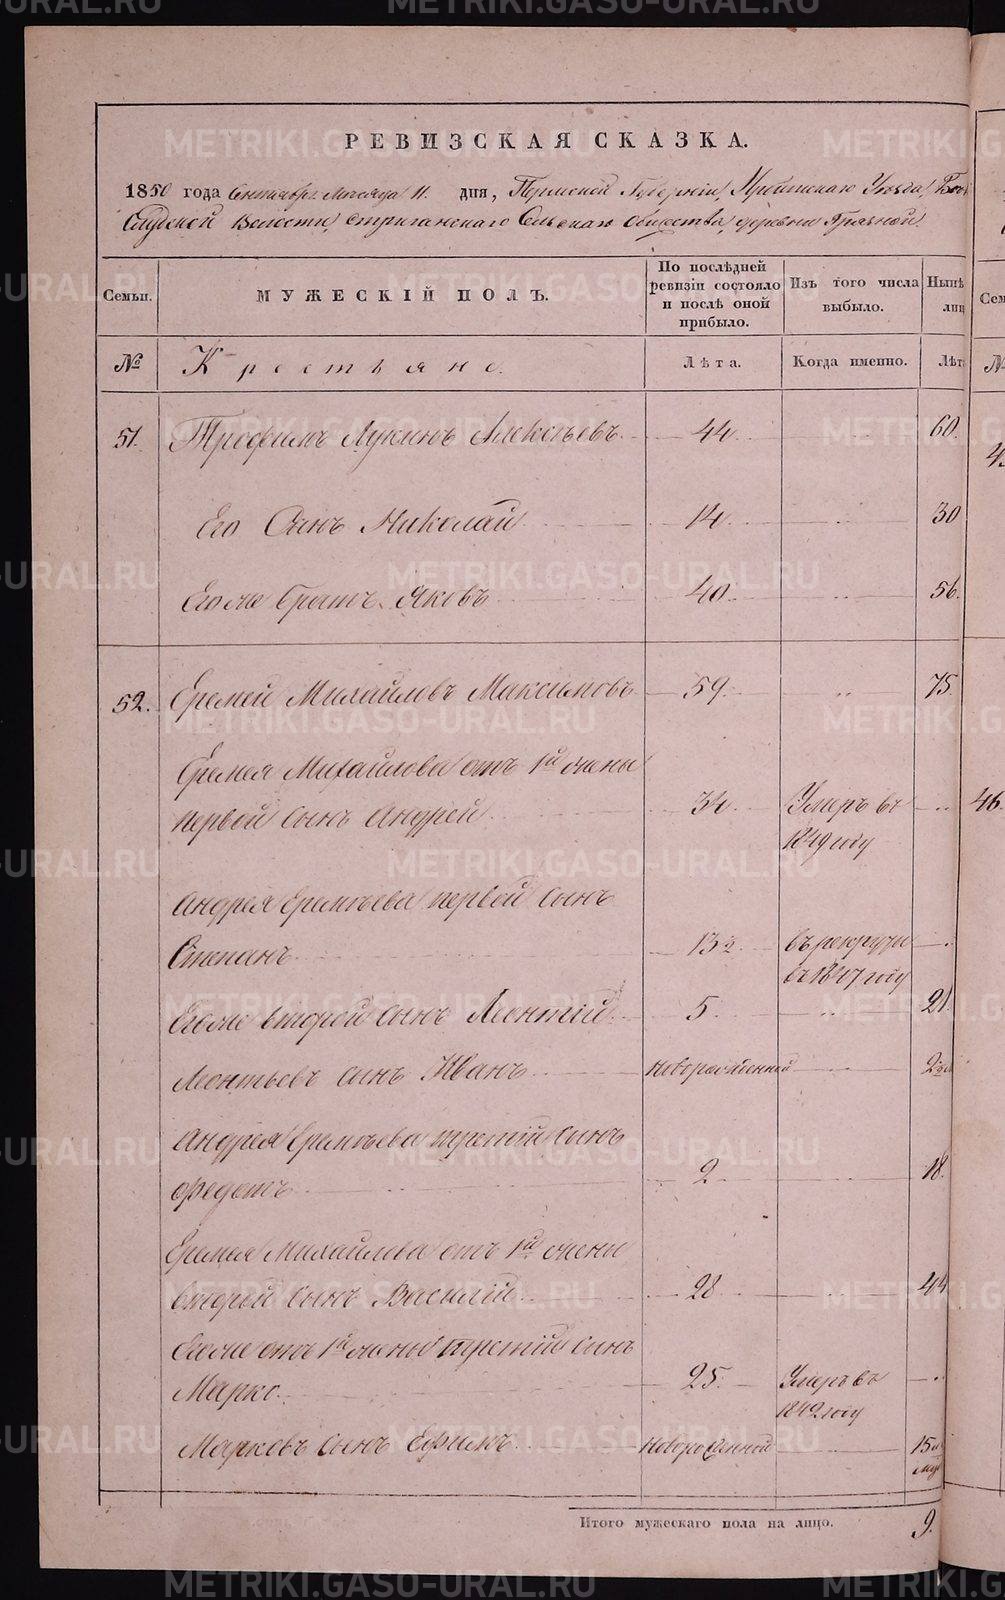 РЕВИЗСКАЯ СКАЗКА.
1850 года Сентября Месяца 11 дня, Пермской Губернии, Ирбитскаго Уезда
Слудской Волости, Стриганскаго Сельскаго Общества, деревни Грязной
Семьи.
МУЖЕСКІЙ ПОЛЪ.
По послѣдней ревизіи состояло и послѣ оной прибыло.
Изъ того числа выбыло.
Нынѣ лиц
№
Крестьяне.
Лѣта.
Когда именно.
Лѣт
51. Трофимъ Лукинъ Алексѣевъ 44 60.
Его Сынъ Николай 14. 30
Егоже братъ Яковъ 40 56.
52. Еремей Михайловъ Максимовъ 59. 75.
Еремея Михайлова отъ 1й жены
первой сынъ Андрей 34 Умеръ въ
1849 году
Андрея Еремѣева первой сынъ
Степанъ 13½ въ рекруты
въ 1847 году
Егоже второй сынъ Леонтій 5. 21.
Леонтьевъ сынъ Иванъ Новорожденной
Андрея Еремѣева третій сынъ
Федотъ 2 18.
Еремея Михайлова отъ 1й жены
второй сынъ Василій 28 44
Егоже отъ 1й жены третій сынъ
Марко. 25. Умеръ въ
1842 году
Марковъ сынъ Ефимъ Новорожденной 15
Итого мужескаго пола на лицо. 9.
Сем
№
46.
METRIKI.GASO-URAL.RU